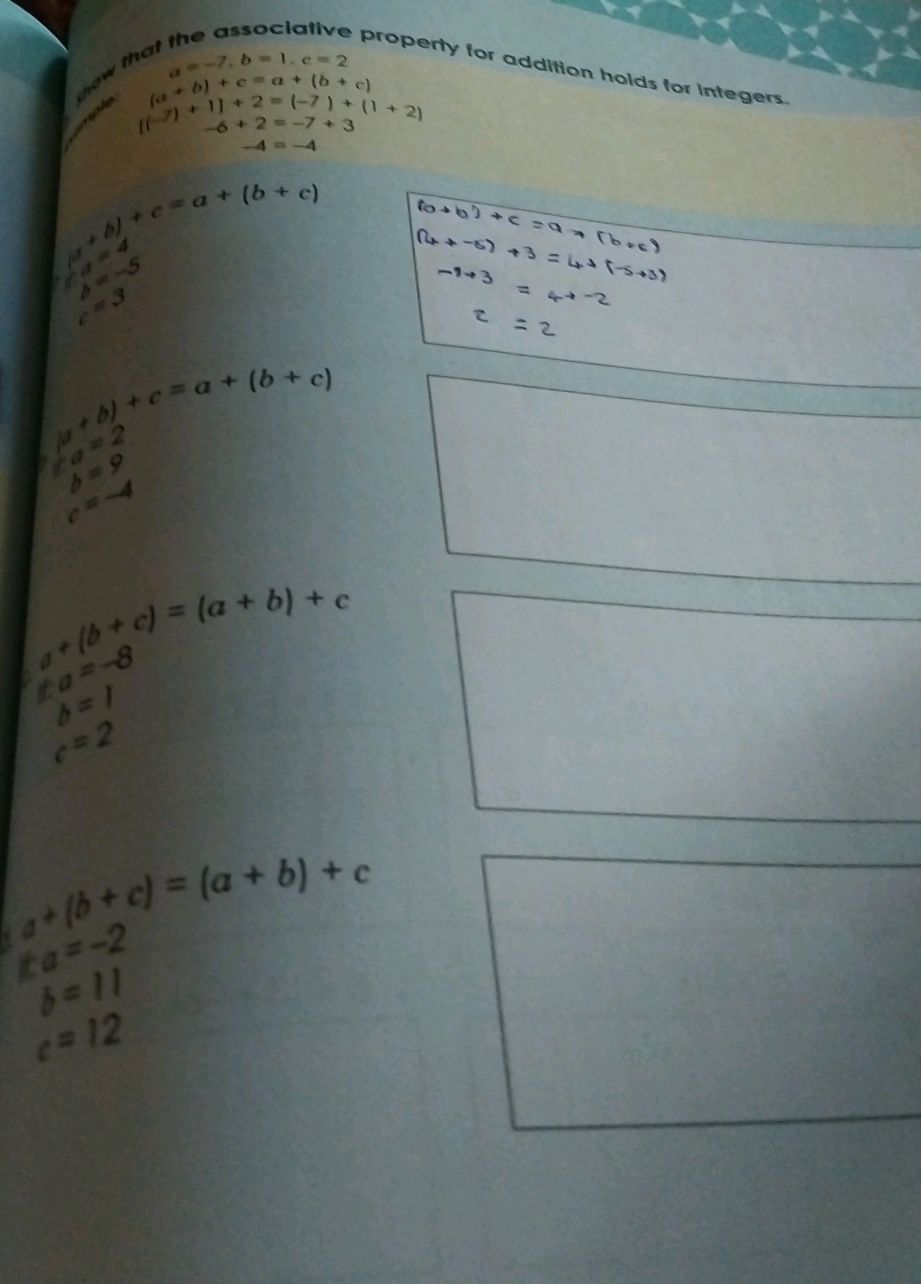 Show that the associative property for addition holds for integers.
Example: a = –7, b = 1, c = 2
(a + b) + c = a + (b + c)
[(–7) + 1] + 2 = (–7) + (1 + 2)
–6 + 2 = –7 + 3
–4 = –4
(a + b) + c = a + (b + c)
If: a = 4
b = –5
c = 3
(a+b) + c = a + (b+c)
(4 + -5) + 3 = 4 + (-5+3)
-1+3 = 4 + -2
2 = 2
(a + b) + c = a + (b + c)
If: a = 2
b = 9
c = –4
a + (b + c) = (a + b) + c
If: a = –8
b = 1
c = 2
a + (b + c) = (a + b) + c
If: a = –2
b = 11
c = 12